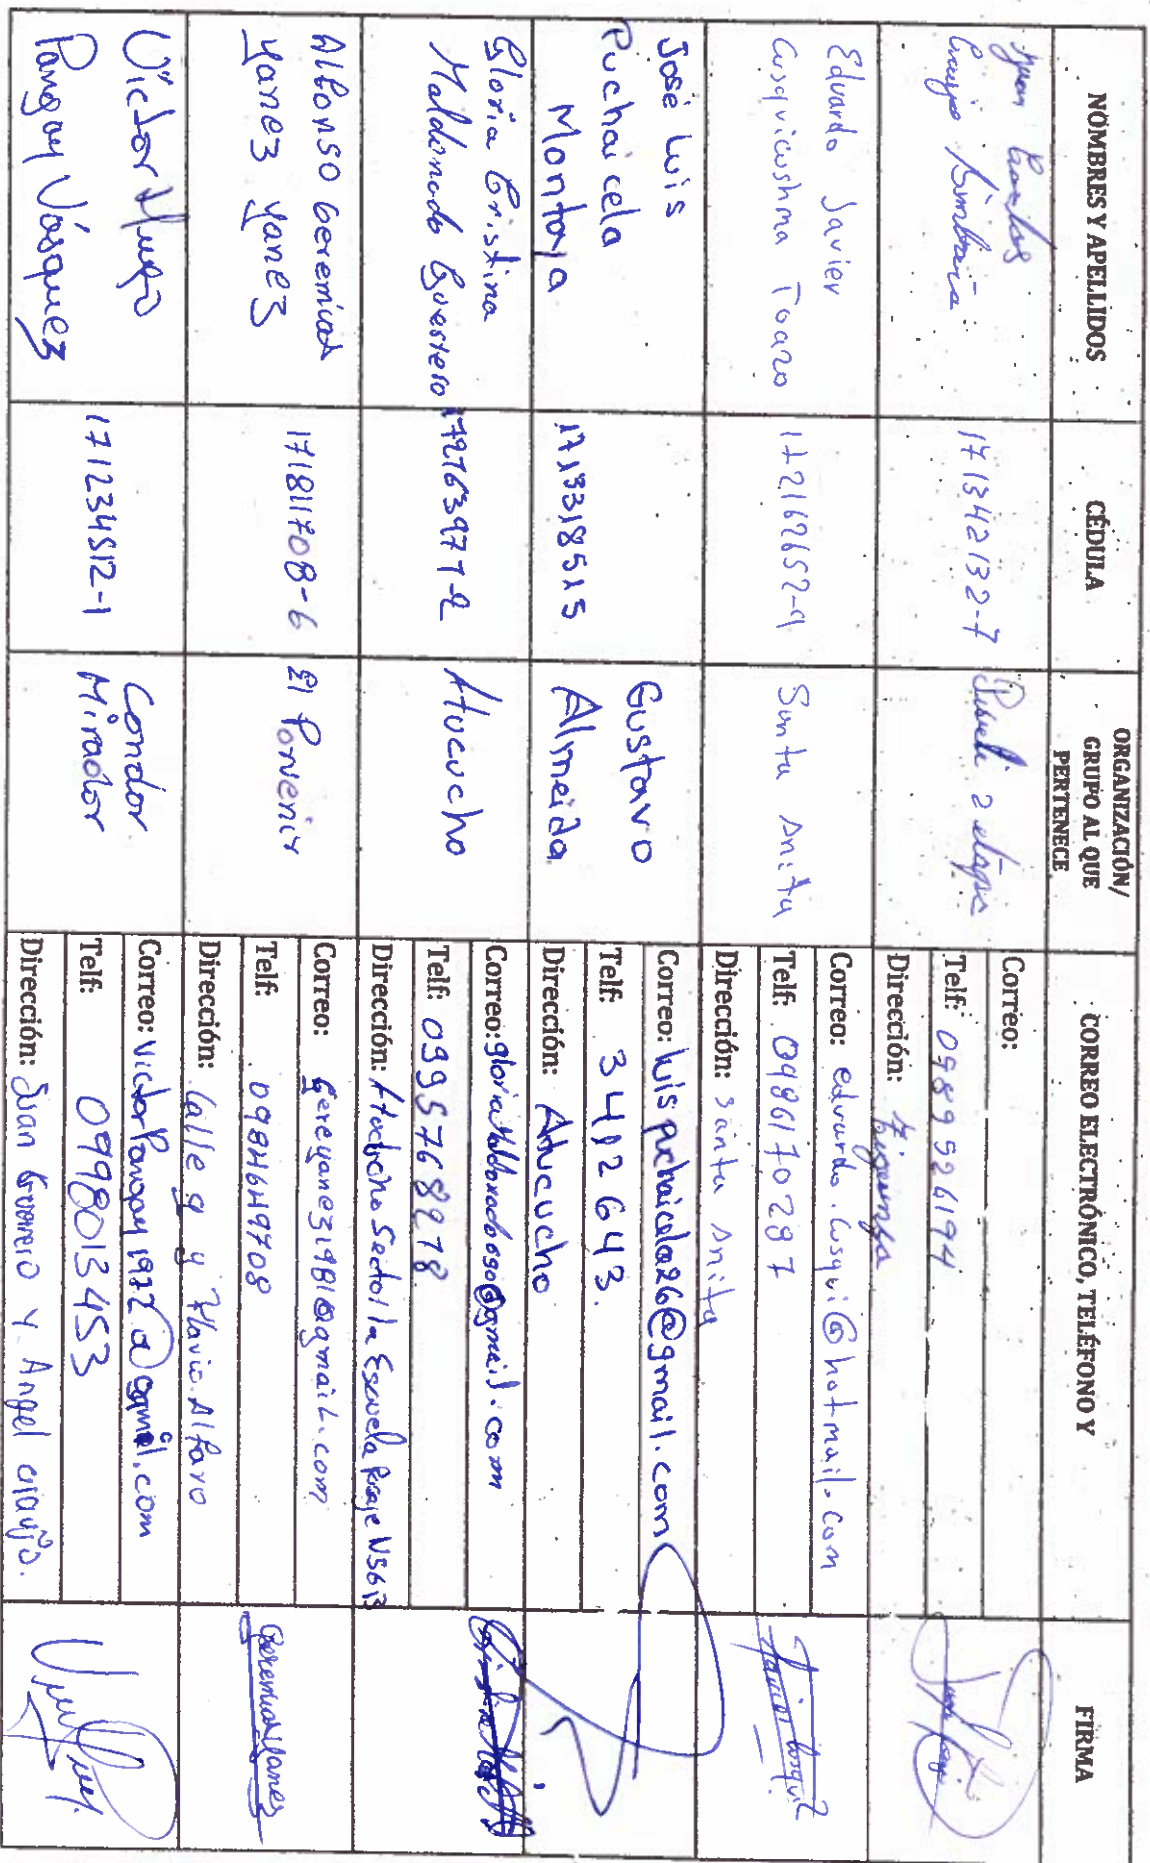 NOMBRES Y APELLIDOS
CÉDULA
ORGANIZACIÓN/
GRUPO AL QUE
PERTENECE
CORREO ELECTRÓNICO, TELÉFONO Y
FIRMA
Juan Carlos
171342132-7
2 etapa
Correo:
Telf: 0989526194
Dirección:
Eduardo Javier
Cusquicushma Toazo
172162652-9
Santa Anita
Correo: eduardo.cusqui@hotmail.com
Telf: 0986170287
Dirección: Santa Anita
José Luis
Puchaicela
Montoya
1713318515
Gustavo
Almeida
Correo: luispuchaicela26@gmail.com
Telf: 3412643.
Dirección: Atucucho
Gloria Cristina
Maldonado Guerrero
172763977-2
Atucucho
Correo: gloriamaldonado090@gmail.com
Telf: 0995768278
Dirección: Atucucho Sector la Escuela Pasaje N56
Alfonso Geremias
Yanez Yanez
171811708-6
El Porvenir
Correo: gereyanez1981@gmail.com
Telf: 0984649708
Dirección: Calle 9 y Flavio Alfaro
Geremias Yanez
Víctor Hugo
Pangay Vásquez
171234512-1
Condor
Mirador
Correo: VictorPangay1972@gmail.com
Telf: 0998013453
Dirección: Juan Guerrero y Angel araujo.